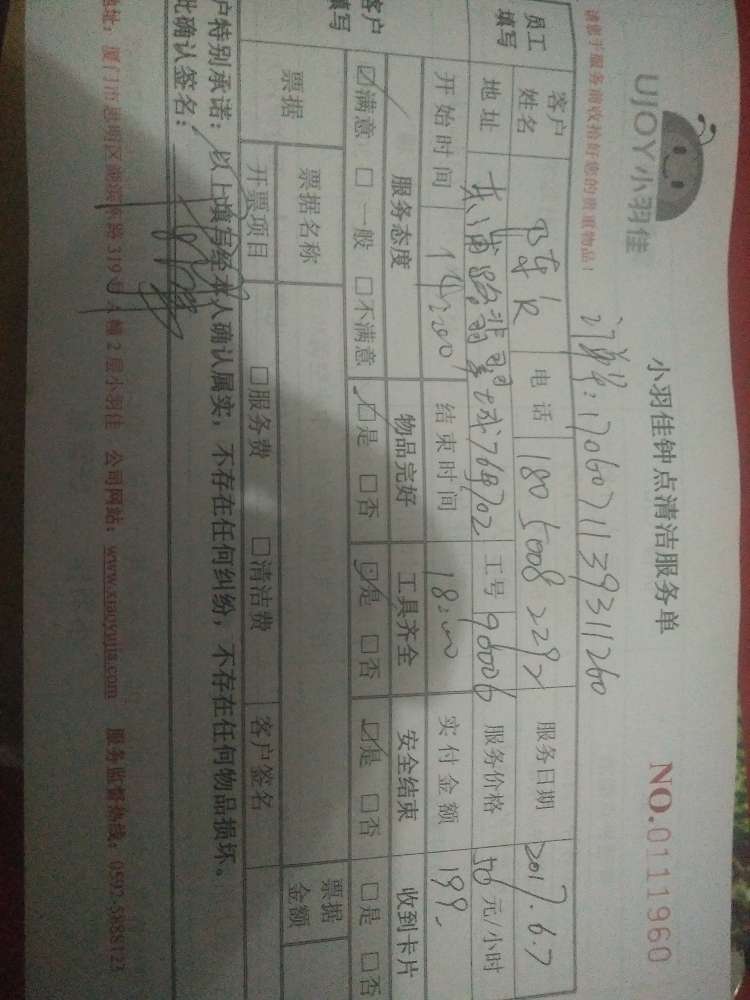 UJOY小羽佳
小羽佳钟点清洁服务单
NO.0111960
请您于服务前收拾好您的贵重物品!
订单号:1706071139311260
员工填写 客户姓名 电话 180 5008 2292 服务日期 2017.6.7
地址 工号 96006 服务价格 50 元/小时
开始时间 14:00 结束时间 18:00 实付金额 199
客户填写 服务态度 物品完好 工具齐全 安全结束 收到卡片
☑满意 □一般 □不满意 ☑是 □否 ☑是 □否 ☑是 □否 □是 □否
票据 票据名称 票据金额
开票项目 □服务费 □清洁费 客户签名
户特别承诺:以上填写经本人确认属实,不存在任何纠纷,不存在任何物品损坏。
此确认签名:
地址:厦门市思明区湖滨南路319号 2层小羽佳 公司网站:www.xiaoyujia.com 服务监督热线:0592-5888123